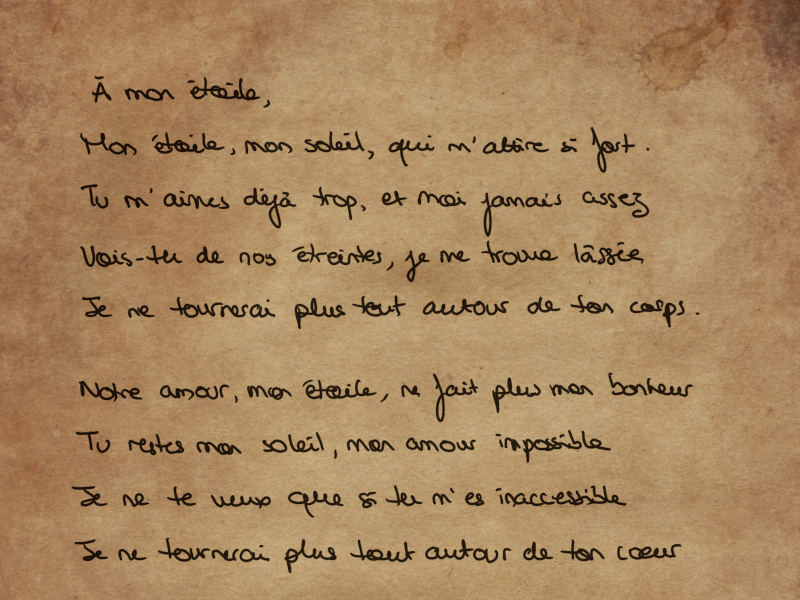 À mon étoile,
Mon étoile, mon soleil, qui m'attire si fort.
Tu m'aimes déjà trop, et moi jamais assez
Vois-tu de nos étreintes, je me trouve lâssée
Je ne tournerai plus tout autour de ton corps.
Notre amour, mon étoile, ne fait plus mon bonheur
Tu restes mon soleil, mon amour impossible
Je ne te veux que si tu m'es inaccessible
Je ne tournerai plus tout autour de ton cœur